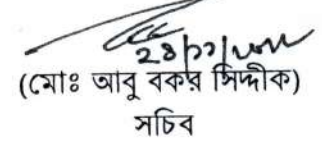 (মোঃ আবু বকর সিদ্দীক)
সচিব